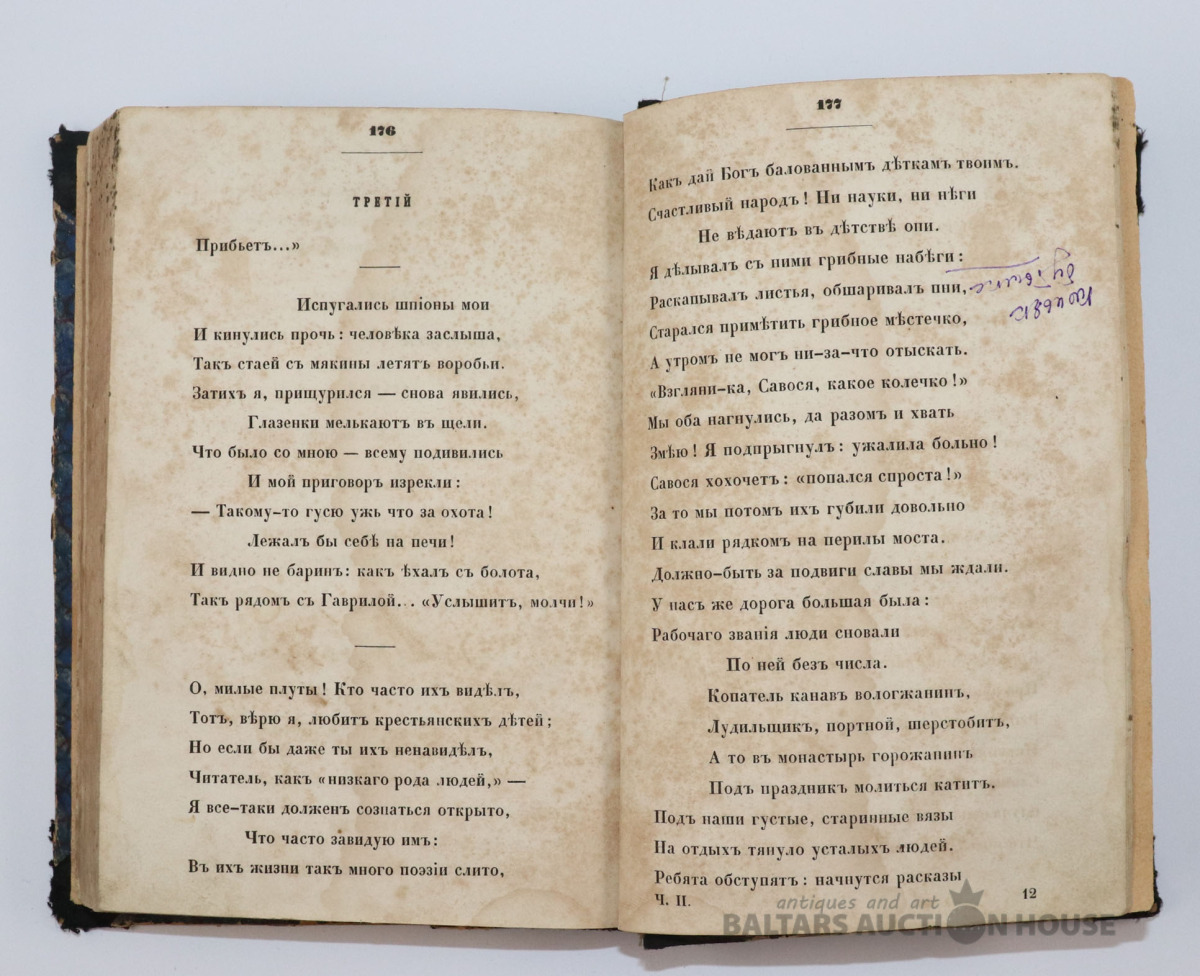 176
ТРЕТІЙ
Прибьетъ...»
Испугались шпіоны мои
И кинулись прочь: человѣка заслыша,
Такъ стаей съ мякины летятъ воробьи.
Затихъ я, прищурился — снова явились,
Глазенки мелькаютъ въ щели.
Что было со мною — всему подивились
И мой приговоръ изрекли:
— Такому-то гусю ужь что за охота!
Лежалъ бы себѣ на печи!
И видно не баринъ: какъ ѣхалъ съ болота,
Такъ рядомъ съ Гаврилой... «Услышитъ, молчи!»
О, милые плуты! Кто часто ихъ видѣлъ,
Тотъ, вѣрю я, любитъ крестьянскихъ дѣтей;
Но если бы даже ты ихъ ненавидѣлъ,
Читатель, какъ «низкаго рода людей,» —
Я все-таки долженъ сознаться открыто,
Что часто завидую имъ:
Въ ихъ жизни такъ много поэзіи слито,
177
Какъ дай Богъ балованнымъ дѣткамъ твоимъ.
Счастливый народъ! Ни науки, ни нѣги
Не вѣдаютъ въ дѣтствѣ они.
Я дѣлывалъ съ ними грибные набѣги:
Раскапывалъ листья, обшаривалъ пни,
Старался примѣтить грибное мѣстечко,
А утромъ не могъ ни-за-что отыскать.
«Взгляни-ка, Савося, какое колечко!»
Мы оба нагнулись, да разомъ и хвать
Змѣю! Я подпрыгнулъ: ужалила больно!
Савося хохочетъ: «попался спроста!»
За то мы потомъ ихъ губили довольно
И клали рядкомъ на перилы моста.
Должно-быть за подвиги славы мы ждали.
У насъ же дорога большая была:
Рабочаго званія люди сновали
По ней безъ числа.
Копатель канавъ вологжанинъ,
Лудильщикъ, портной, шерстобитъ,
А то въ монастырь горожанинъ
Подъ праздникъ молиться катитъ.
Подъ наши густые, старинные вязы
На отдыхъ тянуло усталыхъ людей.
Ребята обступятъ: начнутся разсказы
Ч. II. 12
antiques and art
BALTARS AUCTION HOUSE